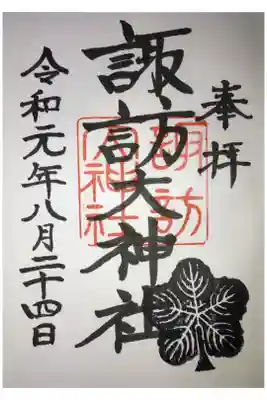 奉拝
諏訪大神社
諏訪
大神社
令和元年八月二十四日